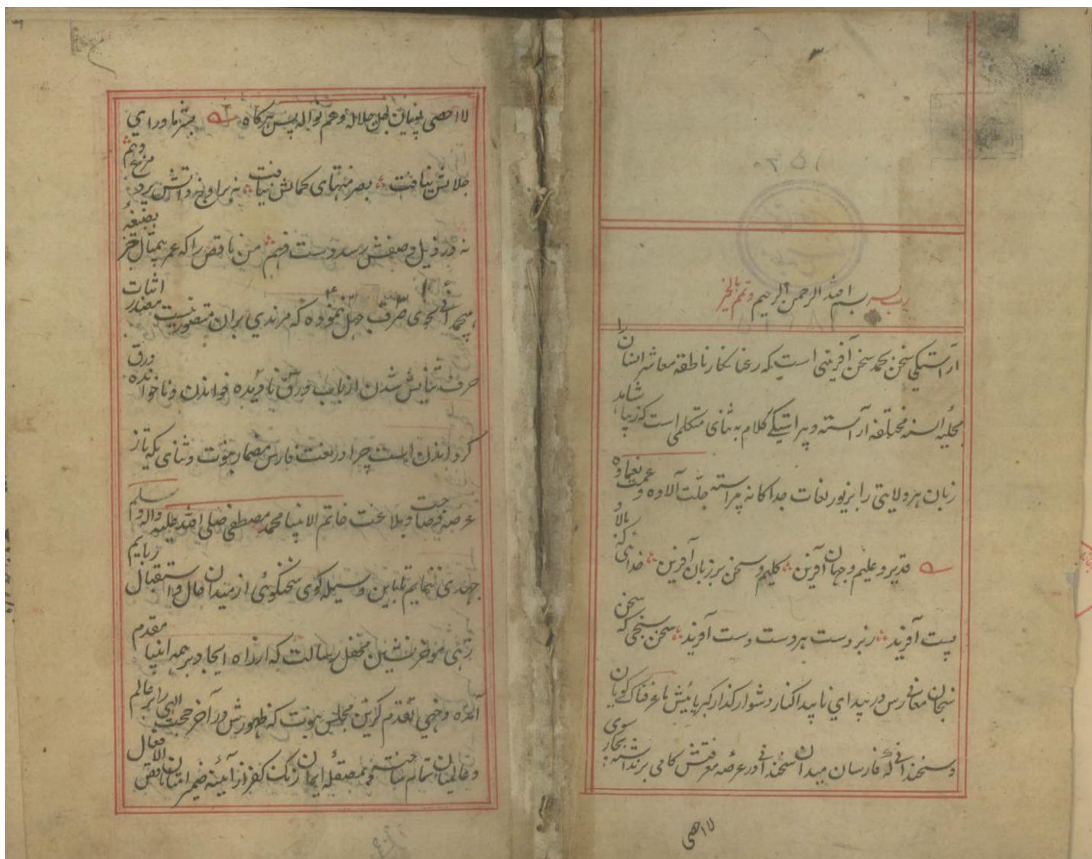 ۳
۰۳۵۱
رب یسر بسم الله الرحمن الرحیم و تمم بالخیر
آراستگی سخن بحمد سخن آفرینی است که رعنا نگار ناطقه معاشر انسان را
بحلیه السنه مختلفه آراسته و پیراستگی کلام به ثنای متکلمی است که زیبا شاهد
زبان هر ولایتی را بزیور لغات جداگانه پیراسته جلت آلاوه و عمت نعماوه
قدیر و علیم و جهان آفرین کلیم و سخن بر زبان آفرین خدای که بالا و
پست آفرید زبر دست هر دست دست آفرید سخن سنجی که سخن
سنجان معانی رس در بیدای ناپیدا کنار دشوار گذار کبریایش ما عرفناک گویان
و سخندانی که فارسان میدان سخندانی در عرصه معرفتش گامی برنداشته بجار سوی
لا احصی
لا احصی پویان جل جلاله و عم نواله پس هرگاه بشر ماورای
جلالش نیافت بصر منتهای کمالش نیافت نه بر اوج ذاتش پرد مرغ وهم
نه در ذیل وصفش رسد دست فهم من ناقص را که عمر بیمثال خز بضیعه
هیچمدانی صرف جهل نموده که مزیدی بران متصور نیست اثبات مصدر
حرف ستایش شدن از باب ورق نادیده خواندن و ناخوانده ورق
گردانیدن است چرا در نعت فارس مضمار نبوت و ثنای یکه تاز
عرصه فصاحت و بلاغت خاتم الانبیا محمد مصطفی صلی الله علیه و آله و سلم
جهدی ننمایم تا باین وسیله گوی سخنگوئی از میدان حال و استقبال ربایم
زهی موخر نشین محفل رسالت که از راه ایجاد بر همه انبیا مقدم
آمده و خهی تقدم گزین مجلس نبوت که ظهورش در آخر حجت الهی را بر عالم
و عالمیان تمام ساخت و بمصقله ایمان زنگ کفر از آئینه ضمیر امتان ناقص الافعال